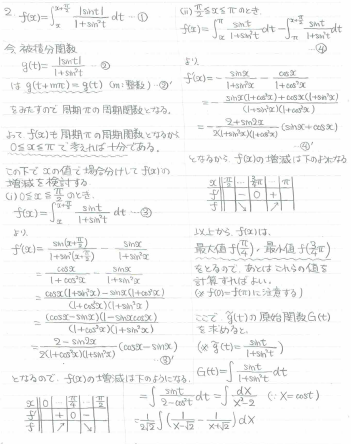 2. f(x)=∫_x^{x+π/2} |sint|/(1+sin²t) dt …①
今、被積分関数
g(t)= |sint|/(1+sin²t) …②
は g(t+mπ)=g(t) (m:整数) …②'
をみたすので周期πの周期関数となる。
よって、f(x)も周期πの周期関数となるから
0≤x≤πで考えれば十分である。
この下でxの値で場合分けしてf(x)の
増減を検討する
(i) 0≤x≤π/2 のとき.
f(x)=∫_x^{x+π/2} sint/(1+sin²t) dt …③
より.
f'(x)= sin(x+π/2)/(1+sin²(x+π/2)) - sinx/(1+sin²x)
= cosx/(1+cos²x) - sinx/(1+sin²x)
= (cosx(1+sin²x)-sinx(1+cos²x))/((1+cos²x)(1+sin²x))
= (cosx-sinx)(1-sinxcosx)/((1+cos²x)(1+sin²x))
= (2-sin2x)/(2(1+cos²x)(1+sin²x)) (cosx-sinx)
③'
となるので、f(x)の増減は下のようになる.
x 0 … π/4 … π/2
f' + 0 -
f ↗ ↘
(ii) π/2≤x≤πのとき.
f(x)=∫_x^π sint/(1+sin²t) dt - ∫_π^{x+π/2} sint/(1+sin²t) dt
④
より
f'(x)= - sinx/(1+sin²x) - cosx/(1+cos²x)
= - (sinx(1+cos²x)+cosx(1+sin²x))/((1+sin²x)(1+cos²x))
= - (2+sin2x)/(2(1+sin²x)(1+cos²x)) (sinx+cosx)
④'
となるから f(x)の増減は下のようになる
x π/2 … 3/4π … π
f' - 0 +
f ↘ ↗
以上から、f(x)は.
最大値 f(π/4), 最小値 f(3/4π)
をとるので、あとはこれらの値を
計算すればよい.
(※ f(0)=f(π)に注意する)
ここで g̃(t)の原始関数G(t)
を求めると、
(※ g̃(t)= sint/(1+sin²t))
G(t)=∫ sint/(1+sin²t) dt
=∫ sint/(2-cos²t) dt = ∫ dX/(X²-2) (∵ X=cost)
= 1/(2√2) ∫ (1/(X-√2) - 1/(X+√2)) dX